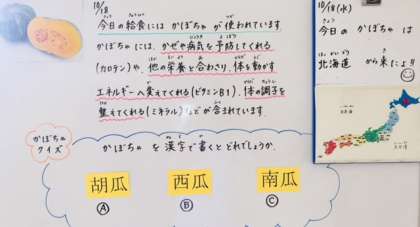 10/18
今日の給食には かぼちゃ が 使われています。
かぼちゃには、かぜや病気を予防してくれる
(カロテン)や、他の栄養と合わさり、体を動かす
エネルギーへ変えてくれる(ビタミンB1)、体の調子を
整えてくれる(ミネラル)などが含まれています。
10/18(水)
今日の かぼちゃ は
北海道 から来たよ!!
かぼちゃ
クイズ
かぼちゃ を 漢字で書くとどれでしょうか。
胡瓜 西瓜 南瓜
Ⓐ Ⓑ Ⓒ